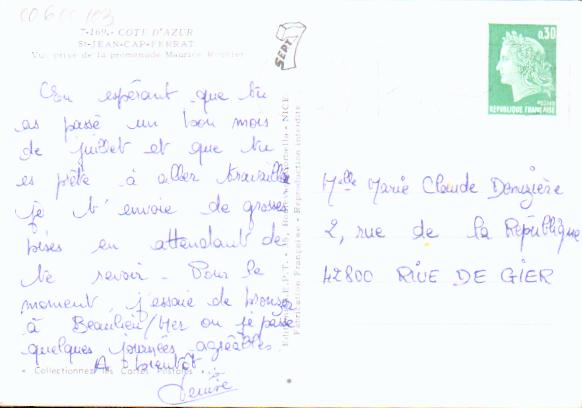 006CC 103
7-169. - COTE D'AZUR
St-JEAN-CAP-FERRAT
Vue prise de la promenade Maurice Rouvier
SEPT 7
0,30
REPUBLIQUE FRANÇAISE
En espérant que tu
as passé un bon mois
de juillet et que tu
es prête à aller travailler
je t'envoie de grosses
bises en attendant de
te revoir. Pour le
moment j'essaie de bronzer
à Beaulieu/Mer où je passe
quelques journées agréables.
A bientôt.
Denise
Collectionnez les Cartes Postales
NICE
Fabrication Française - Reproduction interdite
Melle Marie Claude Denuzière
2, rue de la République
42800 RIVE DE GIER